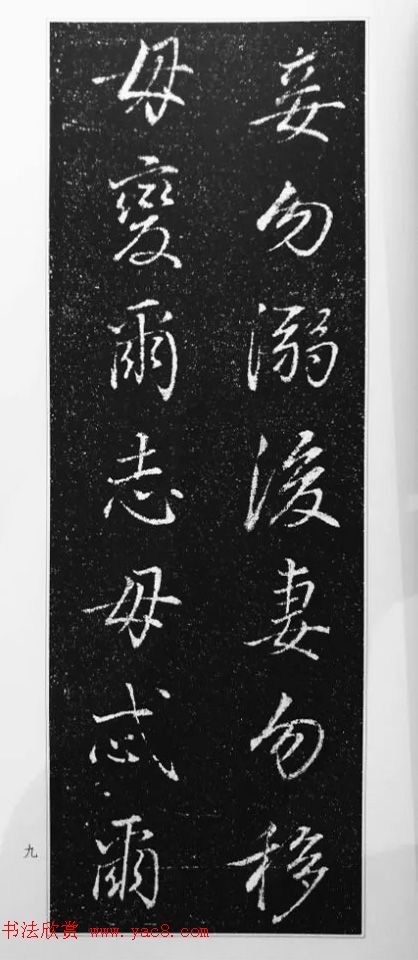 妾勿溺後妻勿移
毋變爾志毋忒爾
九
书法欣赏 www.yac8.com